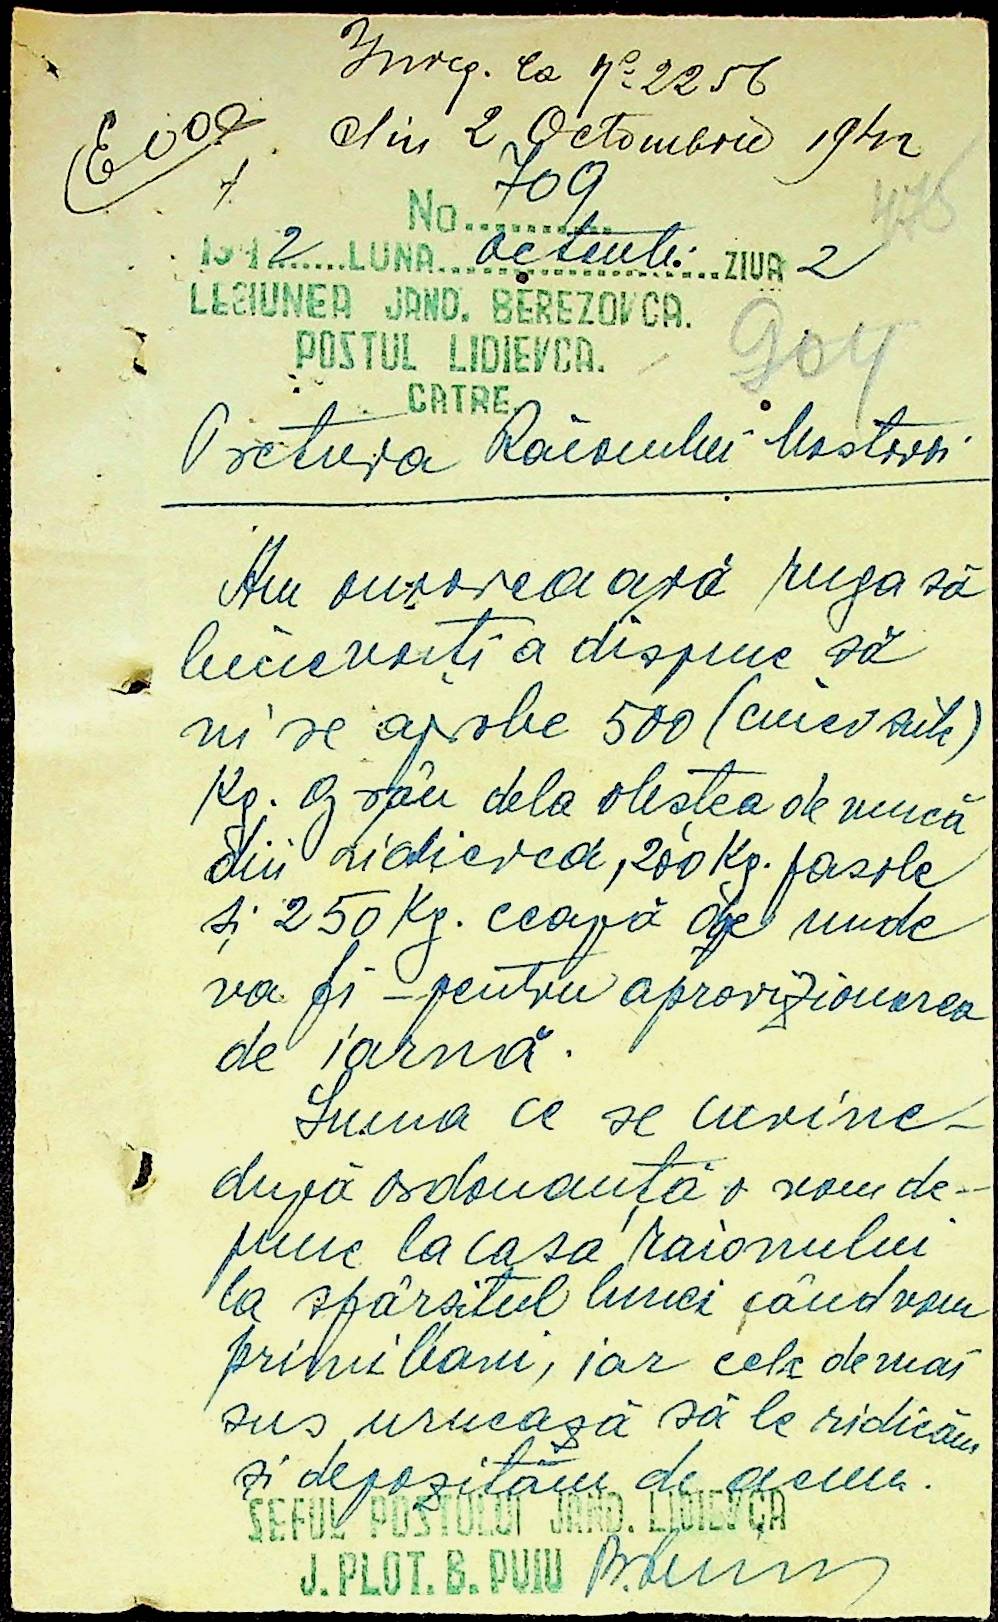 Inreg. la No 2256
din 2 Octombrie 1942
709
No..........
476
1942......LUNA Octombr. ZIUA 2
LEGIUNEA JAND. BEREZOVCA.
POSTUL LIDIEVCA.
904
CATRE
Pretura Raionului Mostovoi
Am onoarea a vă ruga să
binevoiți a dispune să
ni se aprobe 500 (cinci sute)
Kg. grâu dela obștea de muncă
din Lidievca, 200 Kg. fasole
și 250 Kg. ceapă de unde
va fi – pentru aprovizionarea
de iarnă.
Suma ce se cuvine –
după ordonanță o vom de-
pune la casa raionului
la sfârsitul lunei când vom
primi bani, iar cele de mai
sus urmează să le ridicăm
și depozităm de acum.
SEFUL POSTULUI JAND. LIDIEVCA
J. PLOT. B. PUIU